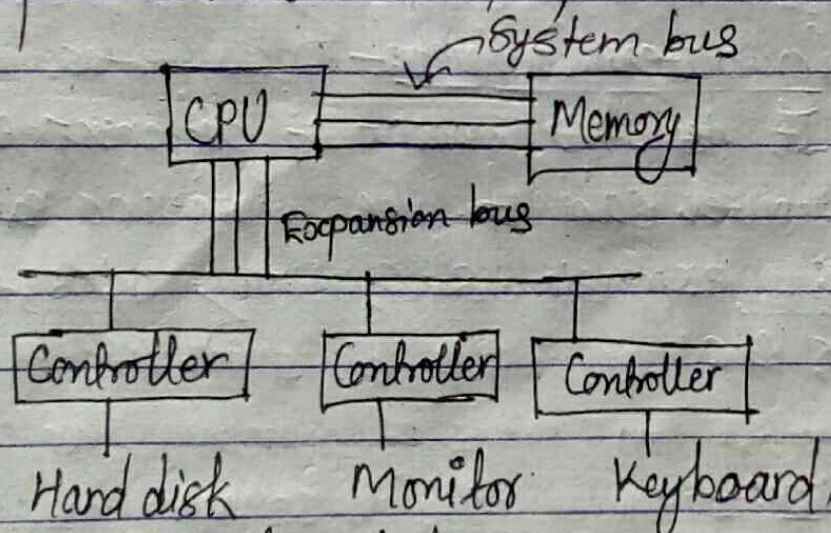 System bus
CPU
Memory
Expansion bus
Controller
Controller
Controller
Hard disk
Monitor
Keyboard